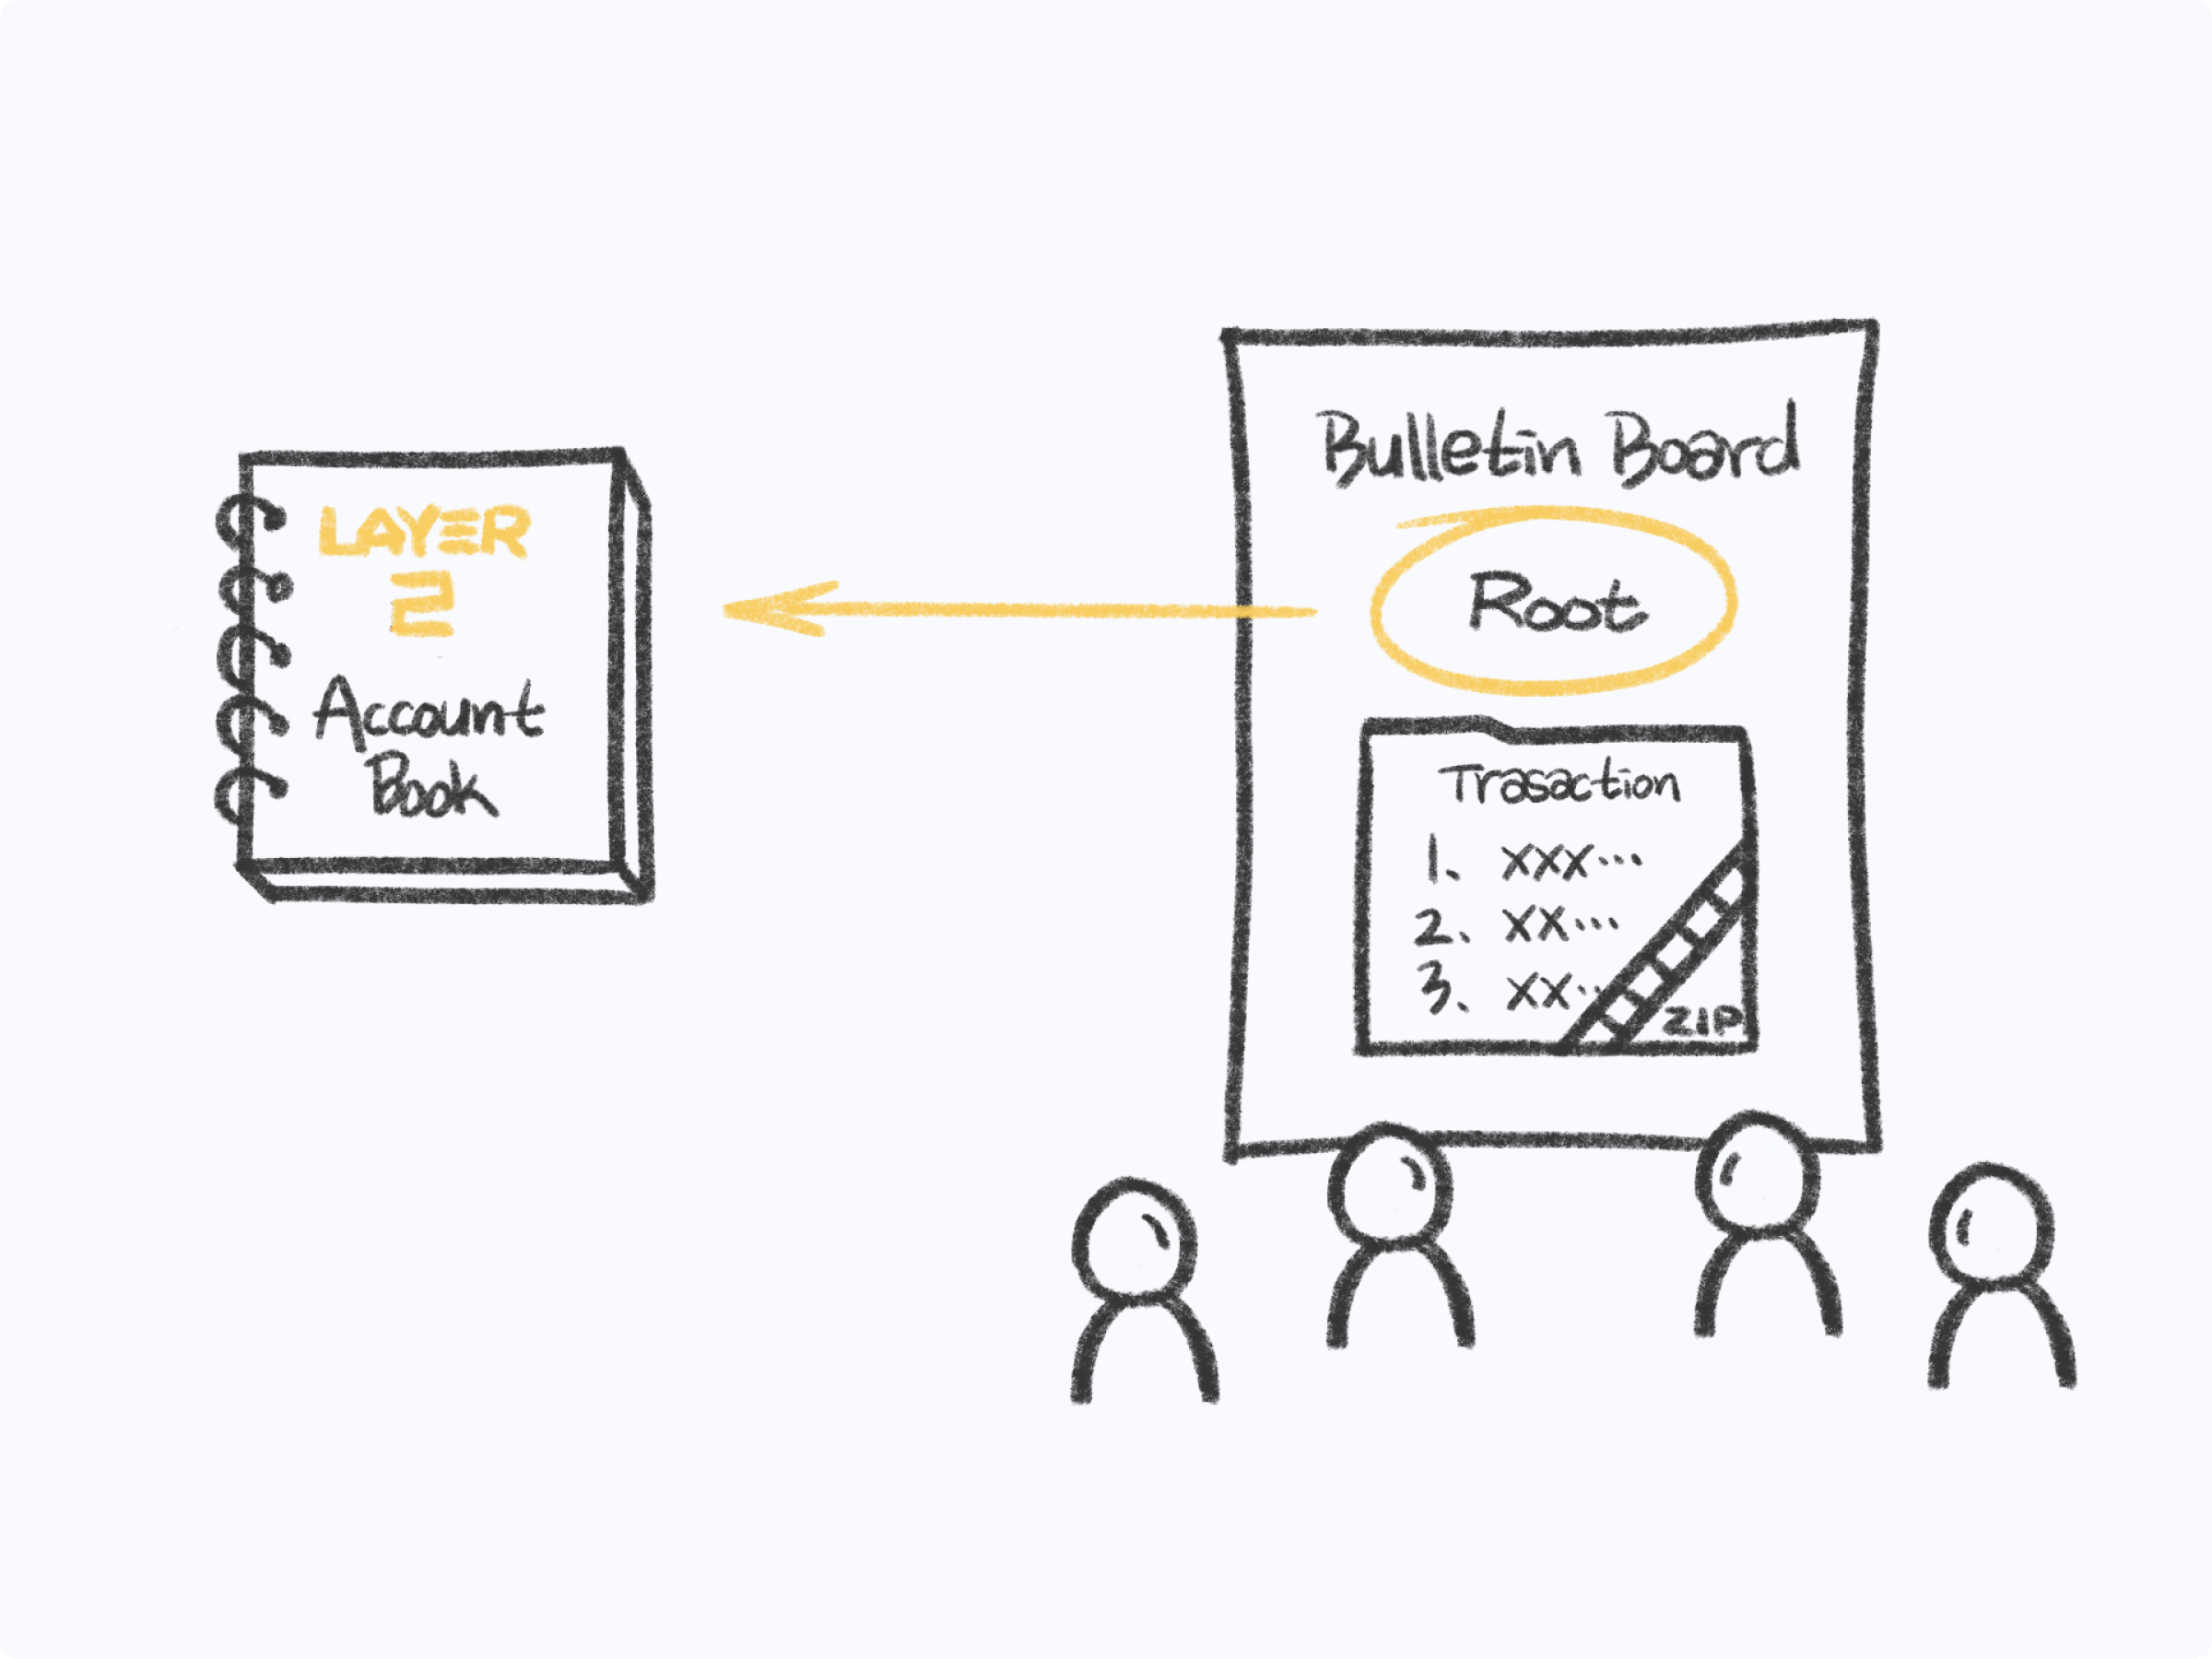 LAYER
2
Account
Book
Bulletin Board
Root
Trasaction
1. XXX...
2. XX...
3. XX..
ZIP